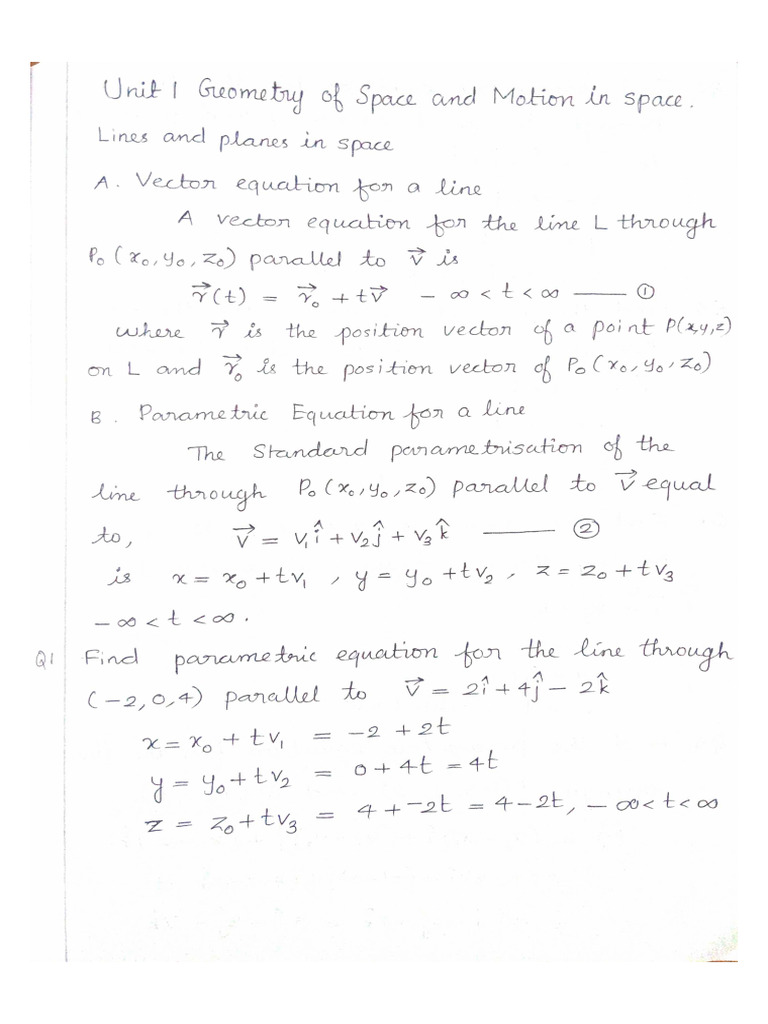 Unit 1 Geometry of Space and Motion in space.
Lines and planes in space
A. Vector equation for a line
A vector equation for the line L through
P₀ (x₀, y₀, z₀) parallel to v⃗ is
r⃗(t) = r⃗₀ + tv⃗ - ∞ < t < ∞ —— ①
where r⃗ is the position vector of a point P(x,y,z)
on L and r⃗₀ is the position vector of P₀ (x₀, y₀, z₀)
B. Parametric Equation for a line
The Standard parametrisation of the
line through P₀ (x₀, y₀, z₀) parallel to v⃗ equal
to, v⃗ = v₁î + v₂ĵ + v₃k̂ —— ②
is x = x₀ + tv₁, y = y₀ + tv₂, z = z₀ + tv₃
-∞ < t < ∞.
Q1 Find parametric equation for the line through
(-2, 0, 4) parallel to v⃗ = 2î + 4ĵ - 2k̂
x = x₀ + tv₁ = -2 + 2t
y = y₀ + tv₂ = 0 + 4t = 4t
z = z₀ + tv₃ = 4 + -2t = 4 - 2t, - ∞ < t < ∞